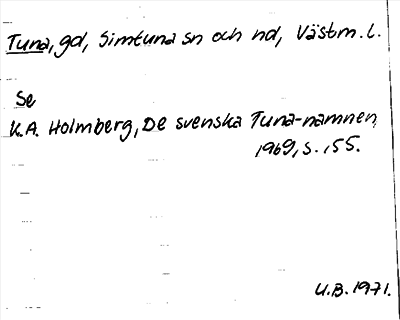 Tuna, gd, Simtuna sn och hd, Västm. l.
Se
K.A. Holmberg, De svenska Tuna-namnen,
1969, s. 155.
U.B. 1971.